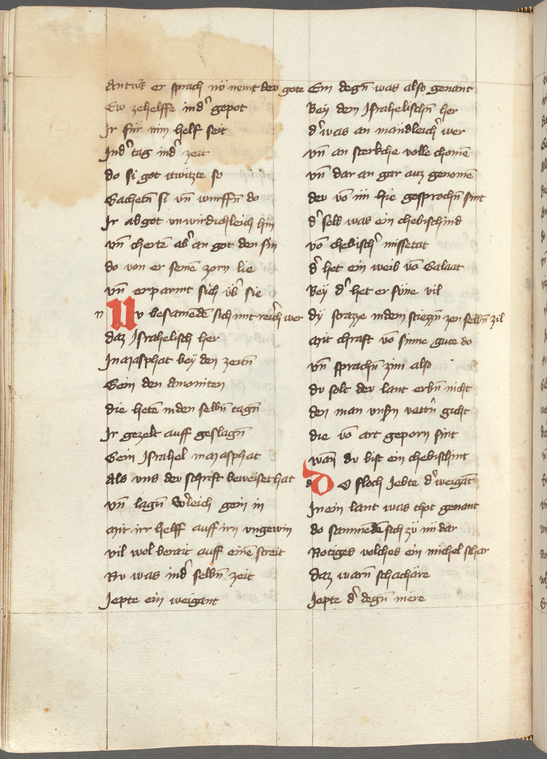 Antwͤrt er sprach nō nemt der gote
Ew zehelffe indˀ gepot
Ir für nim helf seit
Indˀ tag indˀ zeit
do si got itwitzte so
Sachetn̄ si vn̄ wurffn̄ do
Ir abgot vnwirdichleich hin
vn̄ cherte abˀ an got den sin
do von er senē zorn lie
vn̄ erparmt sich vbˀ sie
n Nv besamede sich mit reichˀ wer
daz Israhelisch her
In masphat beÿ den zeitn̄
Gein den amoniten
die hetē in den selbn̄ tagn̄
Ir gezelt auff geslagn̄
Gein Israhel masphat
als vns der schrift beweiset hat
vn̄ lagn̄ gein in
mit irr helff auff irn vngewin
vil wol berait auff eine streit
Nv was indˀ selbn̄ zeit
Iepte ein weigant
Ein degn̄ was also genant
Beÿ dem Israhelischn̄ her
dˀ was an mandleichˀ wer
vn̄ an sterkche volle chomē
vn̄ dar an gar auz genomē
der vō im hie gesprochn̄ sint
dˀ selb was ein chebischind
vō chebischˀ missetat
dˀ het ein weib vō Galaat
Beÿ dˀ het er süne vil
dÿ sazze in den stiezzn̄ zen selbn̄ zil
mit chraft vō sinne gute do
vn̄ sprachn̄ zim also
du solt der lant erbn̄ nicht
den man vnsn̄ vatn̄ gicht
die vō art geporn sint
wan̄ du bist ein chebischint
d Do floch Iebte dˀ weigāt
In ein lant was thot genant
do samnede sich zü im dar
Notiges volches ein michel schar
daz warn̄ schachäre
Iepte dˀ degn̄ mere